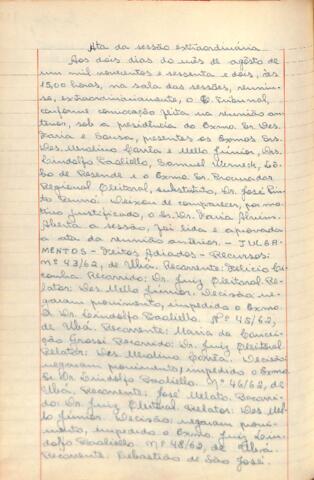 Ata da sessão extraordinária
Aos dois dias do mês de agôsto de
um mil novecentos e sessenta e dois, às
15,00 horas, na sala das sessões, reuniu-
se, extraordinariamente, o E. Tribunal,
conforme convocação feita na reunião an-
terior, sob a presidência do Exmo. Sr. Des.
Faria e Sousa, presentes os Exmos. Srs.
Des. Merolino Corrêa e Mello Júnior, Drs.
Lindolfo Paoliello, Samuel Werneck, Lô-
bo de Resende e o Exmo. Sr. Procurador
Regional Eleitoral, substituto, Dr. José Pin-
to Renó. Deixou de comparecer, por mo-
tivo justificado, o Sr. Dr. Faria Alvim.
Aberta a sessão, foi lida e aprovada
a ata da reunião anterior. - JULGA-
MENTOS - Feitos Adiados - Recursos:
nº 43/62, de Ubá. Recorrente: Felício Cu-
canha. Recorrido: Dr. Juiz Eleitoral. Re-
lator: Des. Mello Júnior. Decisão: ne-
garam provimento, impedido o Exmo.
Sr. Dr. Lindolfo Paoliello. Nº 45/62,
de Ubá. Recorrente: Maria da Concei-
ção Grossi. Recorrido: Dr. Juiz Eleitoral.
Relator: Des. Merolino Corrêa. Decisão:
negaram provimento, impedido o Exmo.
Sr. Dr. Lindolfo Paoliello. Nº 46/62, de
Ubá. Recorrente: José Melato. Recorri-
do: Dr. Juiz Eleitoral. Relator: Des. Mel-
lo Júnior. Decisão: negaram provi-
mento, impedido o Exmo. Juiz Lin-
dolfo Paoliello. Nº 48/62, de Ubá.
Recorrente: Sebastião de São José.